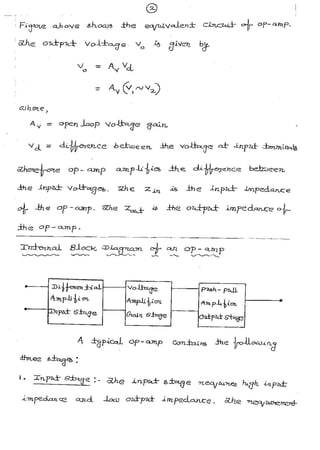 ②
Figure above shows the equivalent circuit of op-amp.
The output voltage Vo is given by
Vo = Av Vd
= Av (V1 ~ V2)
where,
Av = open loop voltage gain
Vd = difference between the voltage at input terminals
Therefore op-amp amplifies the difference between
the input voltages. The Zin is the input impedance
of the op-amp. The Zout is the output impedance of
the op-amp.
Internal Block Diagram of an op-amp
Differential Amplifier Input Stage
Voltage Amplifier Gain Stage
Push-pull Amplifier Output Stage
A typical op-amp contains the following
three stages:
1. Input Stage :- The input stage requires high input
impedance and low output impedance. The requirement